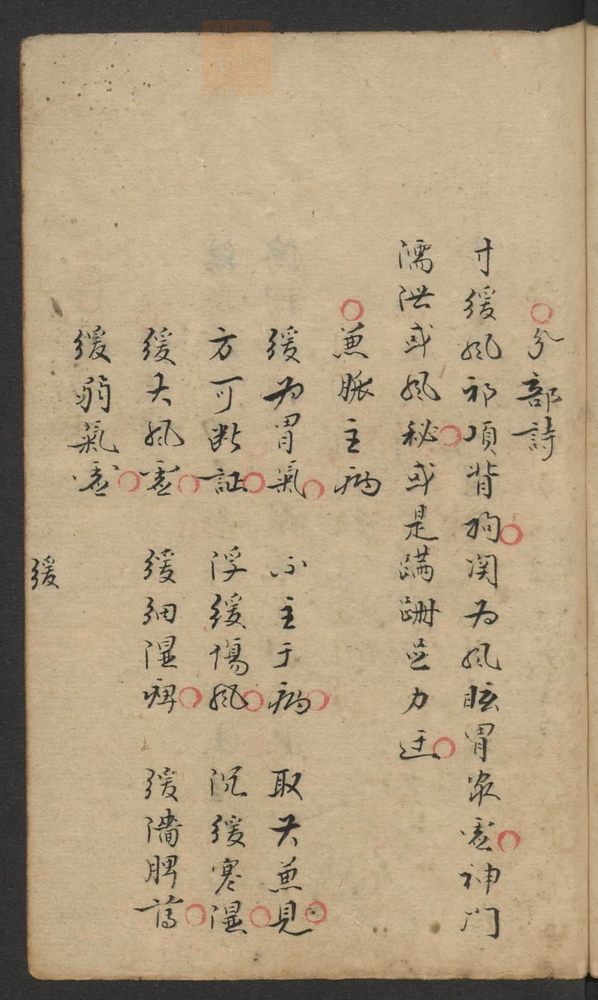 分部詩
寸緩風邪項背拘関为風眩胃家虛神門
濡洪或風秘或是蹣跚足力迂
兼脈主病
緩为胃氣 不主于病 取其兼見
方可断証 浮緩傷風 沉緩寒湿
緩大風虛 緩細湿痺 緩濇脾薄
緩弱氣虛
緩